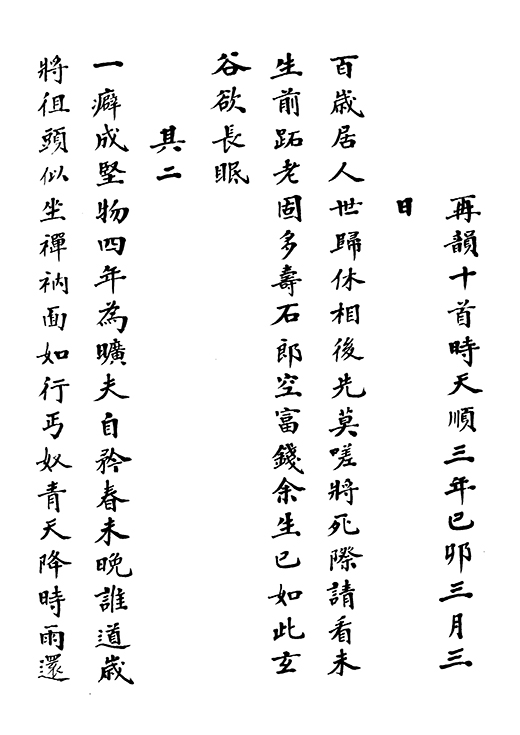 再韻十首時天順三年己卯三月三
日
百歲居人世歸休相後先莫嗟將死際請看未
生前跖老固多壽石郎空富錢余生已如此玄
谷欲長眠
其二
一癖成堅物四年為曠夫自矜春未晚誰道歲
將徂頭似坐禪衲面如行丐奴青天降時雨還